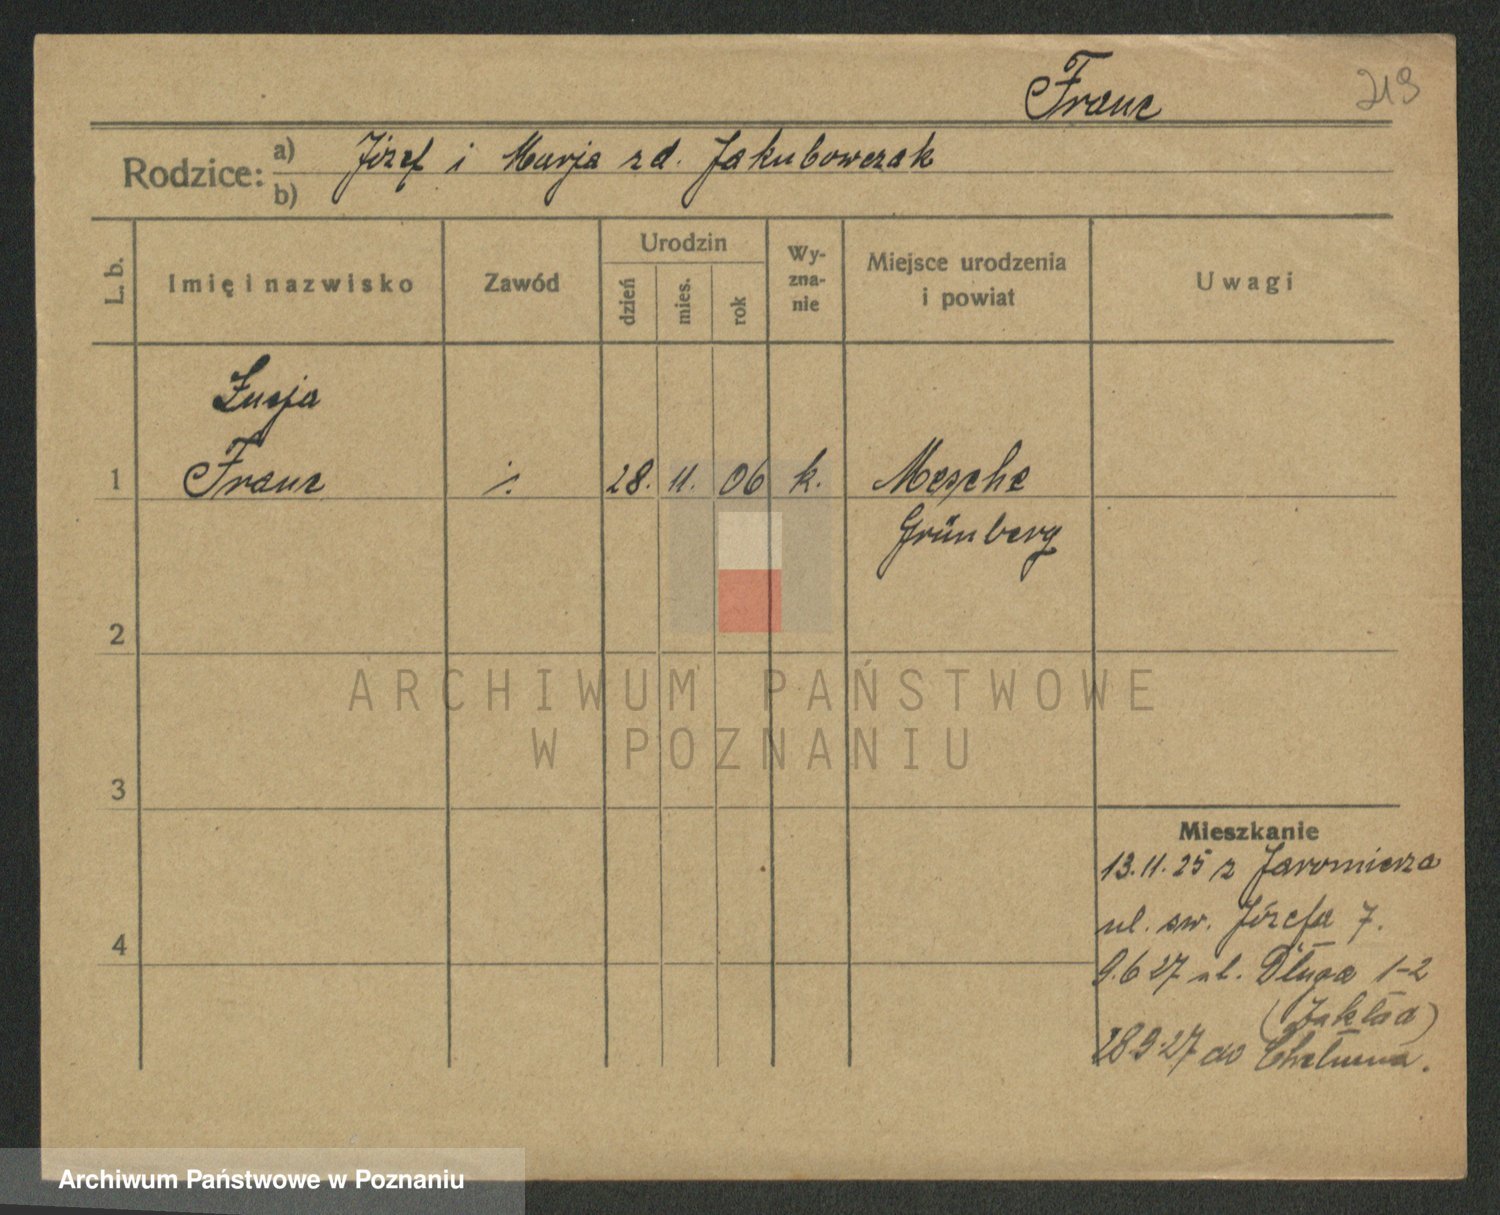 Franc 219
Rodzice: a) Józef i Marja zd. Jakubowczak
b)
L. b.
Imię i nazwisko
Zawód
Urodzin
dzień
mies.
rok
Wy-
zna-
nie
Miejsce urodzenia
i powiat
Uwagi
Łucja
1 Franc 28. 11. 06 k. Mesche
Grünberg
2
3
4
ARCHIWUM PAŃSTWOWE
W POZNANIU
Mieszkanie
13.11.25 z Jaromierza
ul. św. Józefa 7.
9.6 27 ul. Długa 1-2
(Zakład)
28 9.27 do Chełmna.
Archiwum Państwowe w Poznaniu